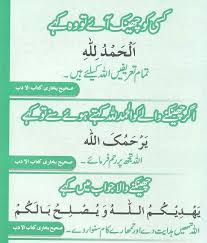 کسی کو چھینک آئے تو وہ کہے
اَلْحَمْدُ لِلّٰهِ
تمام تعریفیں اللہ کیلئے ہیں۔
صحیح بخاری کتاب الادب
اگر چھینکنے والے کو الحمدللہ کہتے ہوئے سنے تو کہے
يَرْحَمُكَ اللّٰه
اللہ تجھ پر رحم فرمائے۔
صحیح بخاری کتاب الادب
چھینکنے والا جواب میں کہے
يَهْدِيْكُمُ اللّٰهُ وَيُصْلِحُ بَالَكُمْ
اللہ تمھیں ہدایت دے اور تمھارے کام سنوار دے۔
صحیح بخاری کتاب الادب